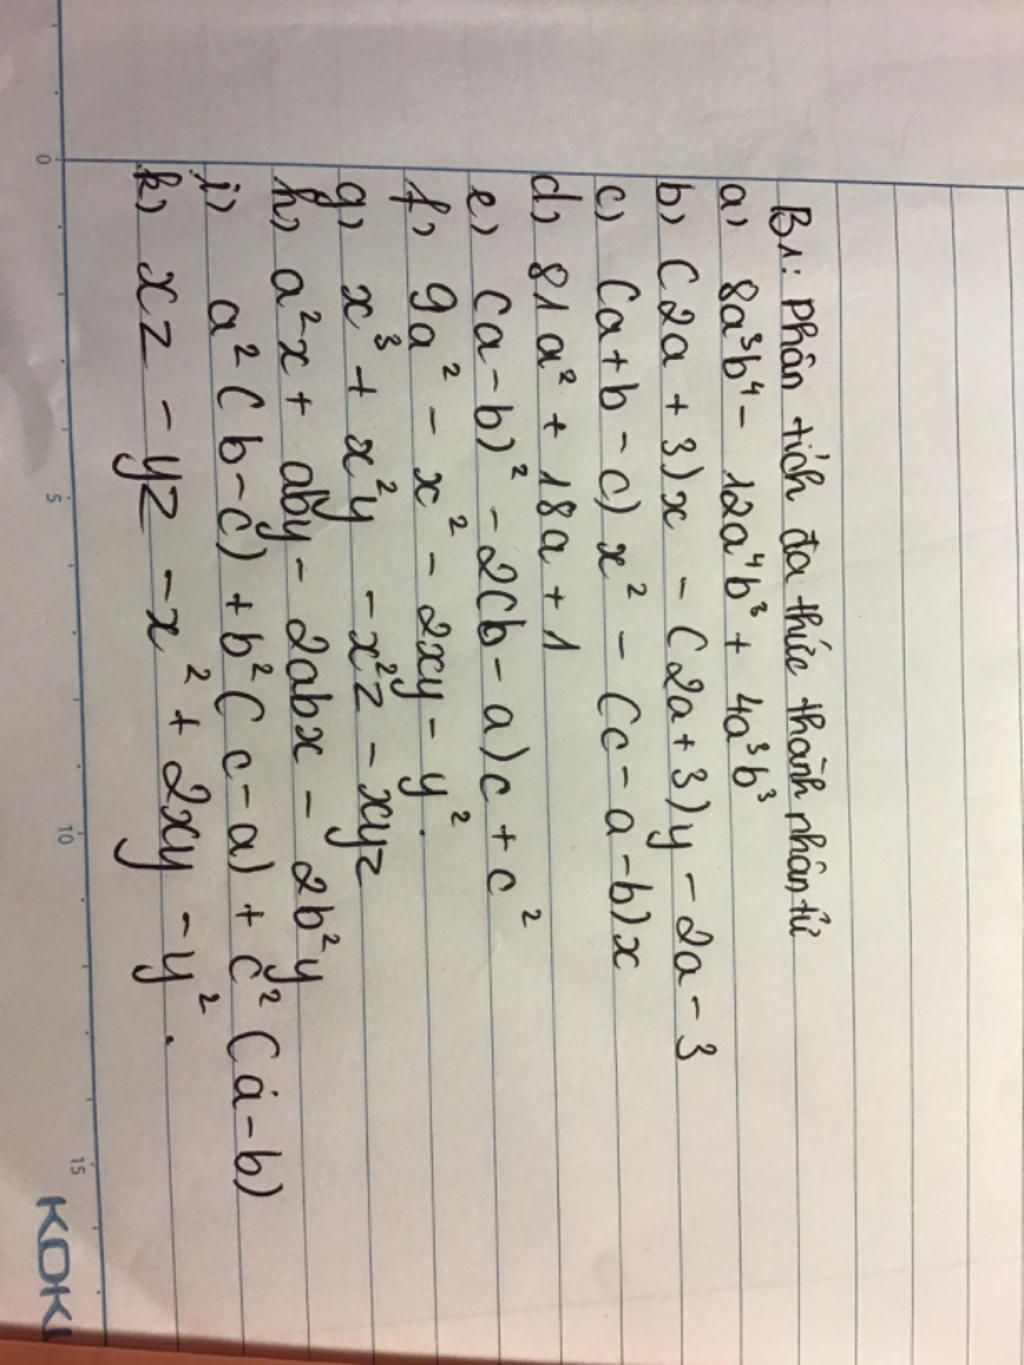 B1: Phân tích đa thức thành nhân tử
a, 8a³b⁴ - 12a⁴b³ + 4a³b³
b, (2a + 3)x - (2a + 3)y - 2a - 3
c, (a + b - c) x² - (c - a - b)x
d, 81a² + 18a + 1
e, (a - b)² - 2(b - a)c + c²
f, 9a² - x² - 2xy - y².
g, x³ + x²y - x²z - xyz
h, a²x + aby - 2abx - 2b²y
i, a² (b - c) + b² (c - a) + c² (a - b)
k, xz - yz - x² + 2xy - y².
0 5 10 15
KOKU